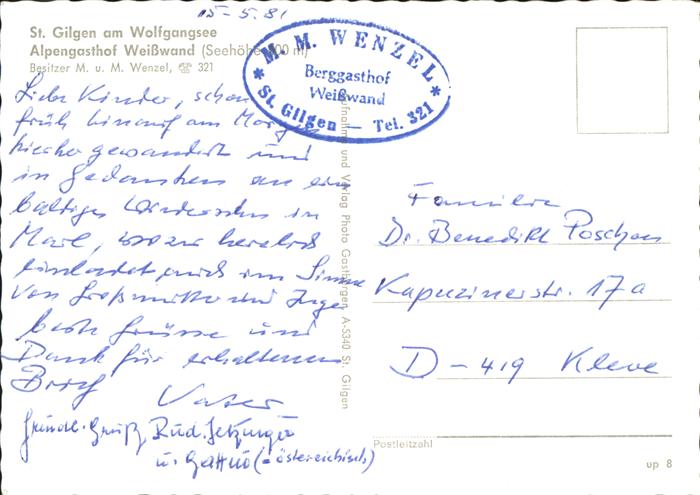 15-5.81
St. Gilgen am Wolfgangsee
Alpengasthof Weißwand (Seehöhe 800 m)
Besitzer M. u. M. Wenzel, ☎ 321
* M. M. WENZEL *
Berggasthof
Weißwand
St. Gilgen — Tel. 321
Liebe Kinder, schon
früh hinauf am
hierher gewandert und
in Gedanken an ein
baldiges Wiedersehn in
Marl, wozu herzlich
einladet, auch im Sinne
von Großmutter und Inge
beste Grüsse und
Dank für erhaltenen
Brief Vater
freundl. Gruß, Rud.
u. Gattin (-österreichisch)
Aufnahme und Verlag Photo Gastberger, A-5340 St. Gilgen
Familie
Dr. Benedikt Poschen
Kapuzinerstr. 17a
D-419 Kleve
Postleitzahl
up 8